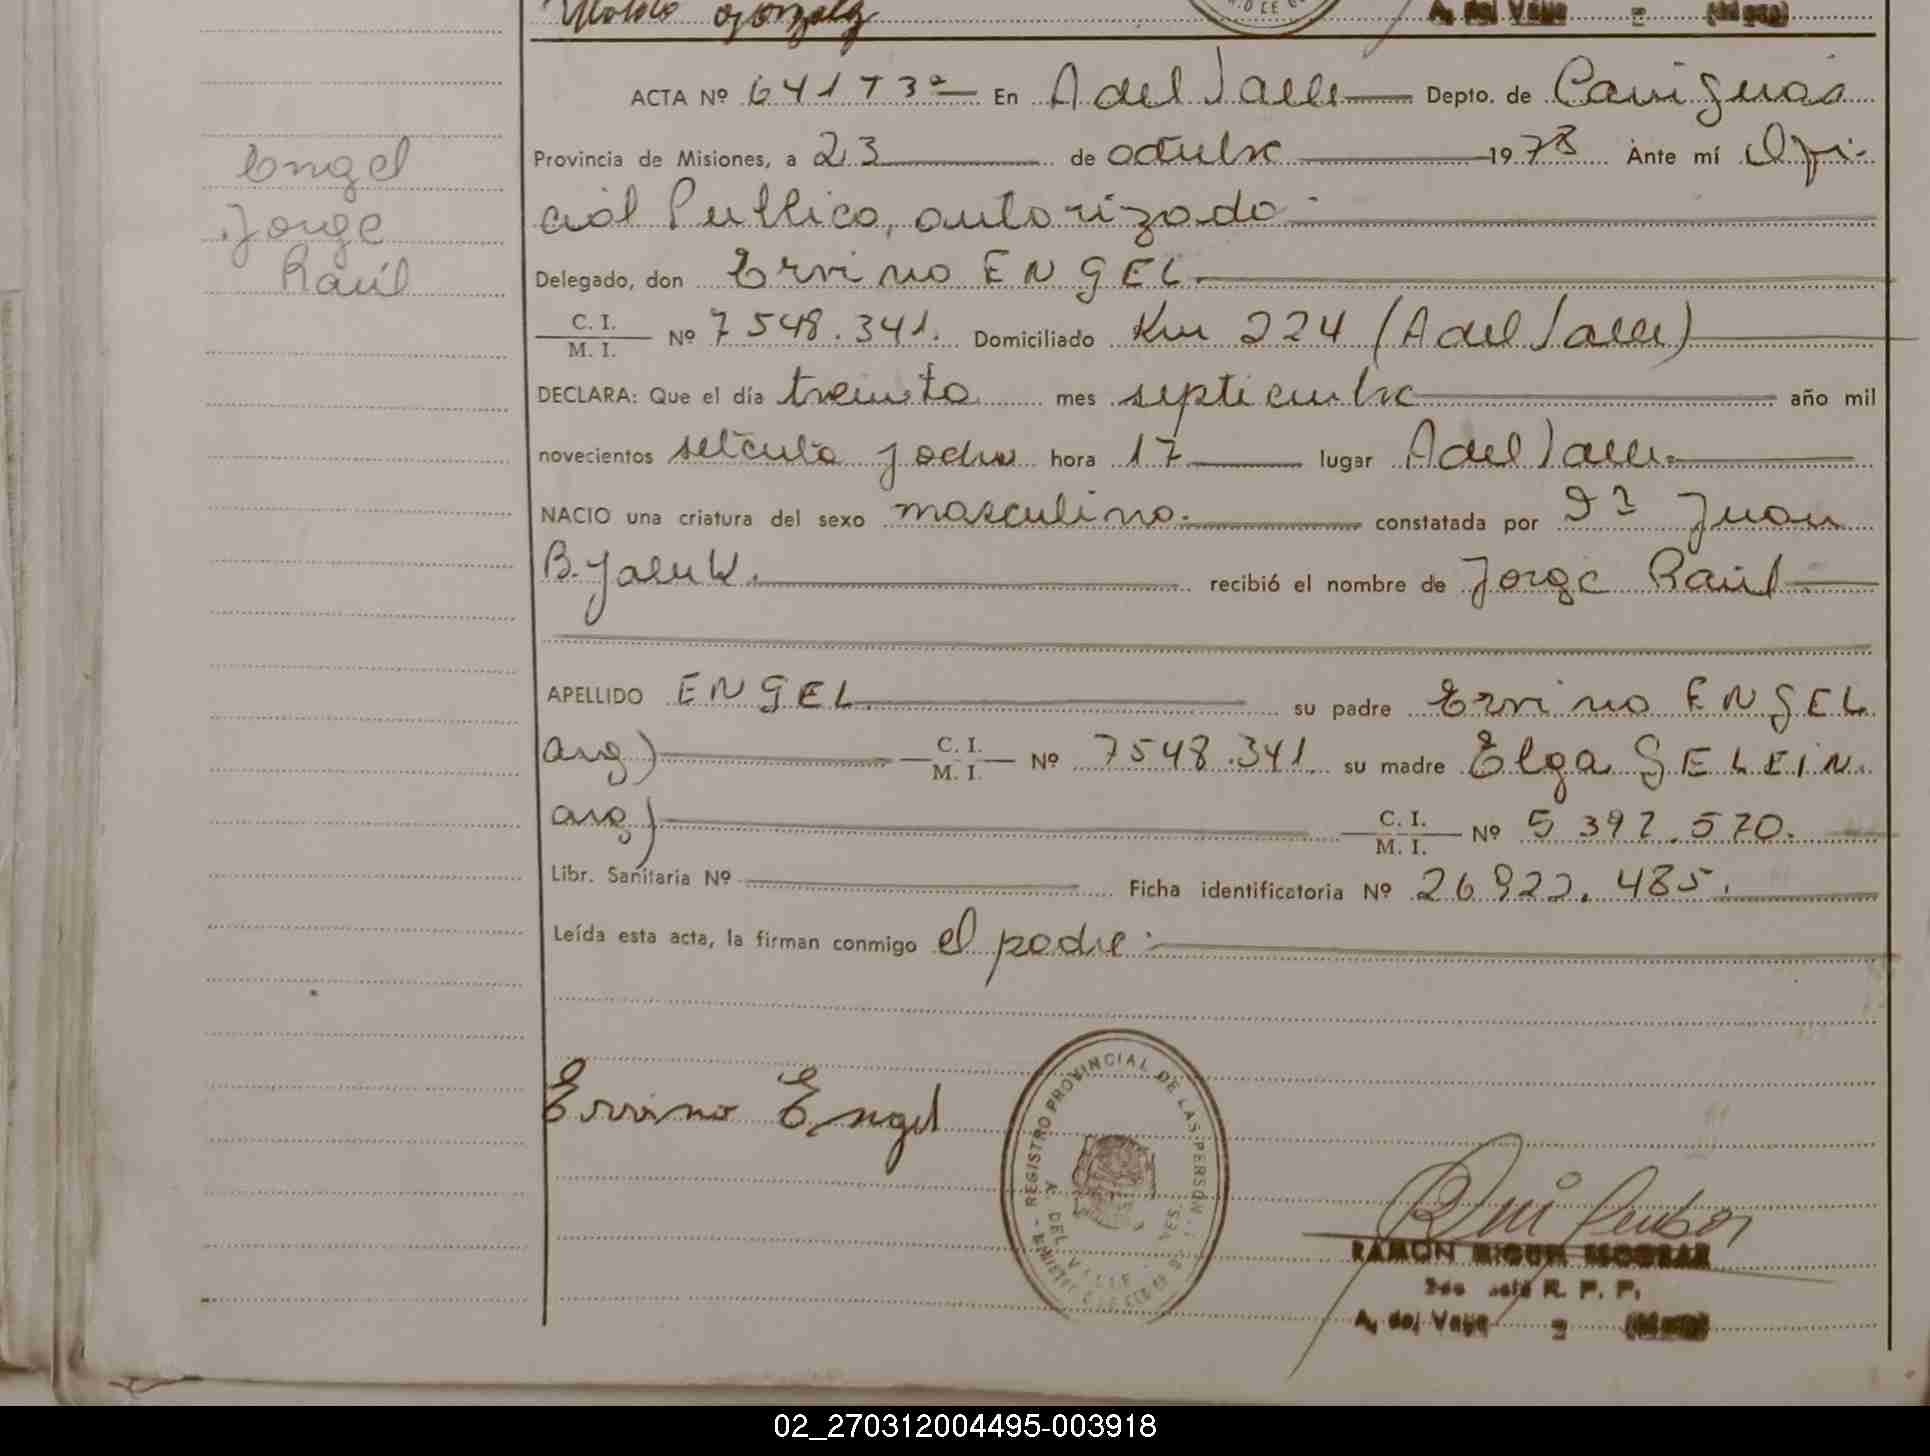 A. del Valle - (Mnes)
ACTA Nº 641 T 3º En A del Valle Depto. de Cainguás
Provincia de Misiones, a 23 de octubre 1978 Ante mí Ofi-
cial Publico, autorizado
Delegado, don Ervino ENGEL
C. I.
M. I. Nº 7548.341. Domiciliado Km 224 (A del Valle)
DECLARA: Que el día treinta mes septiembre año mil
novecientos setenta y ocho hora 17 lugar A del Valle.
NACIO una criatura del sexo masculino. constatada por Juan
B. Yaluk. recibió el nombre de Jorge Raúl
APELLIDO ENGEL su padre Ervino ENGEL
arg) C. I.
M. I. Nº 7548.341. su madre Elga GELEIN.
arg) C. I.
M. I. Nº 5 392.570.
Libr. Sanitaria Nº Ficha identificatoria Nº 26.922.485.
Leída esta acta, la firman conmigo el padre.
Engel
Jorge
Raúl
Ervino Engel
REGISTRO PROVINCIAL DE LAS PERSONAS
A. DEL VALLE
RAMON MIGUEL ESCOBAR
R. P. P.
A. del Valle - (Mnes)
02_270312004495-003918